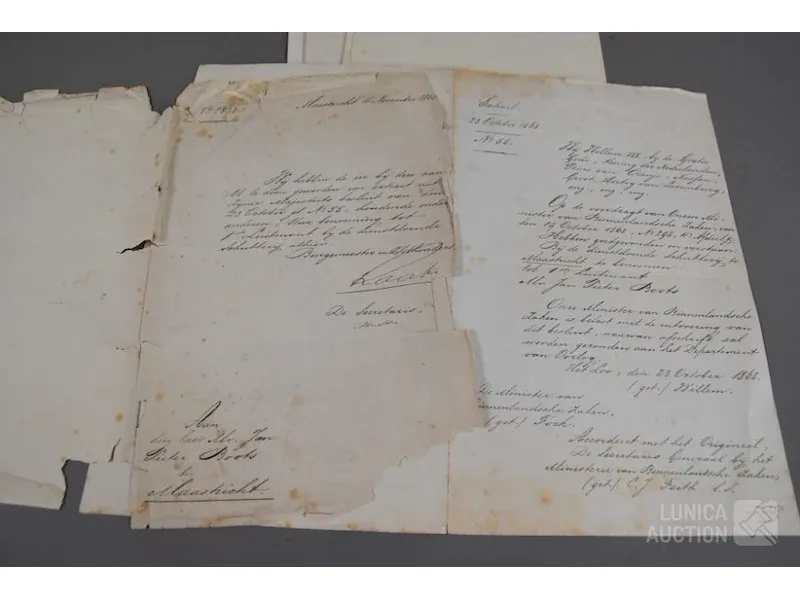 Maastricht November 1868
Wij hebben de eer bij deze aan
U te doen geworden een extract uit
Zijner Majesteits besluit van den
23 October jl No 55, houdende onder
anderen Uwe benoeming tot
1en Luitenant bij de dienstdoende
Schutterij alhier.
Burgemeester en Wethouders
De Secretaris,
Aan
den heer Mr. Jan
Pieter Boots
te
Maastricht.
Extract.
23 October 1868
No 55.
Wij Willem III, bij de Gratie
Gods, Koning der Nederlanden,
Prins van Oranje-Nassau,
Groot-Hertog van Luxemburg,
enz, enz, enz.
Op de voordragt van Onzen Mi-
nister van Binnenlandsche Zaken, van
den 19 October 1868, No 298,
Hebben goedgevonden en verstaan:
Bij de dienstdoende Schutterij te
Maastricht te benoemen
tot 1en Luitenant
Mr. Jan Pieter Boots
Onze Minister van Binnenlandsche
Zaken is belast met de uitvoering van
dit besluit, waarvan afschrift zal
worden gezonden aan het Departement
van Oorlog.
Het Loo, den 23 October 1868.
(get.) Willem.
De Minister van
Binnenlandsche Zaken,
(get.) Fock.
Accordeert met het Origineel,
De Secretaris Generaal bij het
Ministerie van Binnenlandsche Zaken,
(get.) C. J.
LUNICA
AUCTION